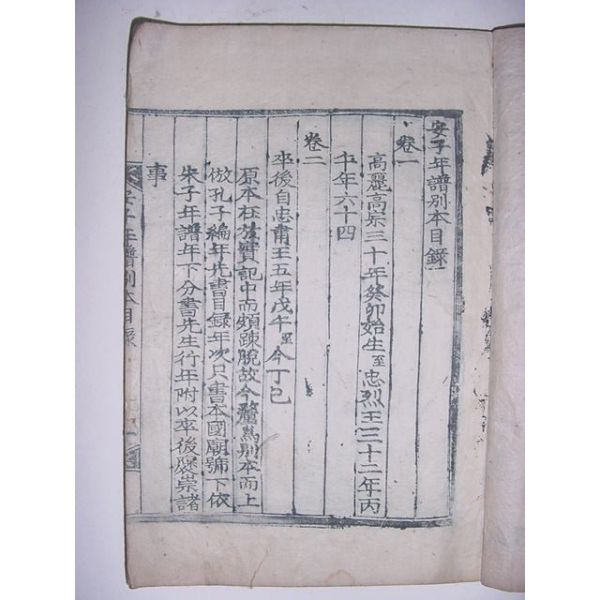 安子年譜別本目録
卷一
高麗高宗三十年癸卯始生至忠烈王三十二年丙
午年六十四
卷二
卒後自忠肅王五年戊午至今丁巳
原本在於實記中而頗踈脫故今釐爲別本而上
倣孔子編年先書目録年次只書本國廟號下依
朱子年譜年下分書先生行年附以卒後褒崇諸
事
安子年譜別本目録